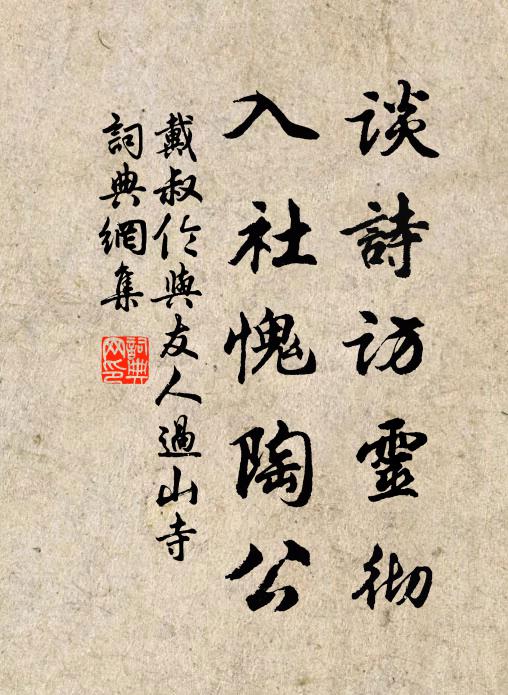 谈詩访靈彻
入社愧陶公
戴叔伦與友人過山寺
詞典網集
詞典网印